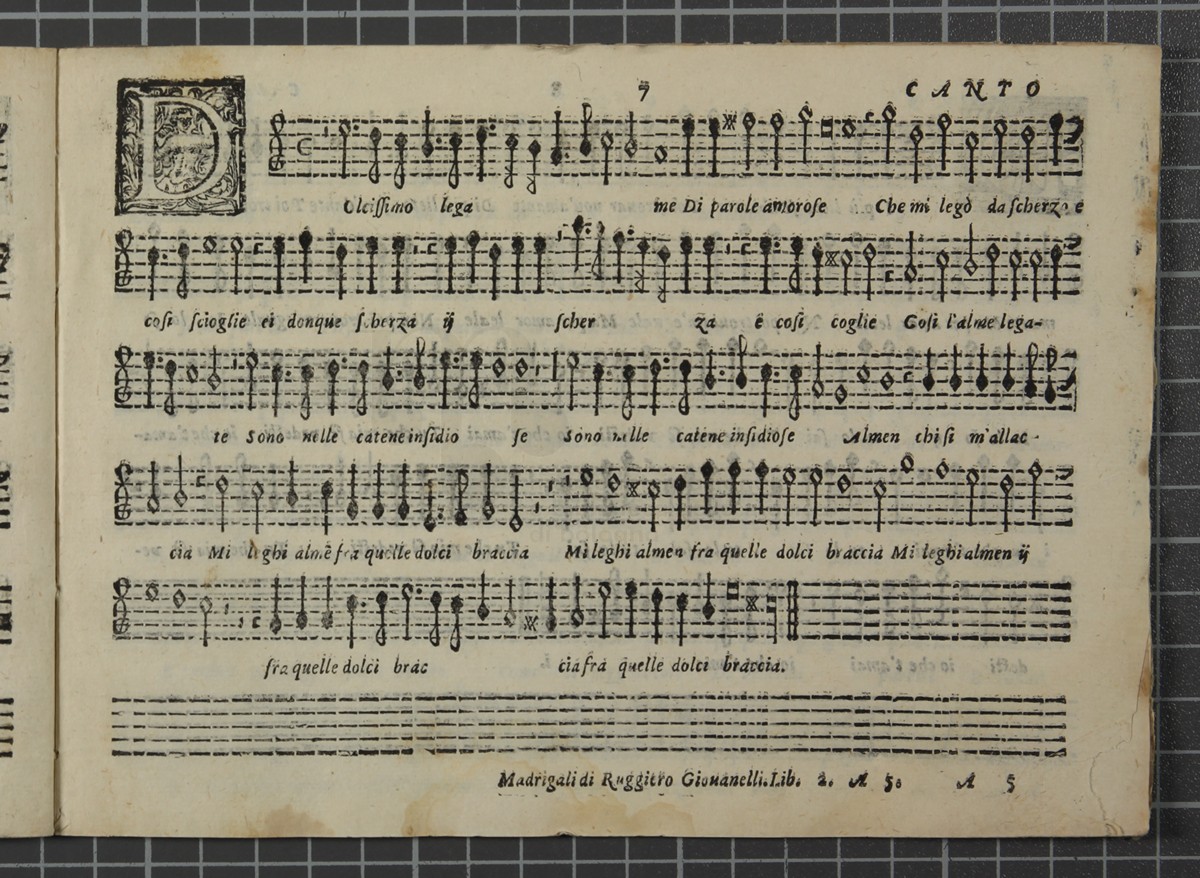 7 CANTO
D
Olcissimo lega me Di parole amorose Che mi legò da scherzo e
cosi scioglie ei donque scherza ij scher za è cosi coglie Cosi l'alme lega-
te Sono nelle catene insidio se Sono nelle catene insidiose Almen chi si m'allac-
cia Mi leghi almẽ fra quelle dolci braccia Mi leghi almen fra quelle dolci braccia Mi leghi almen ij
fra quelle dolci brac cia fra quelle dolci braccia.
Madrigali di Ruggiero Giouanelli. Lib. 2. A 5. A 5